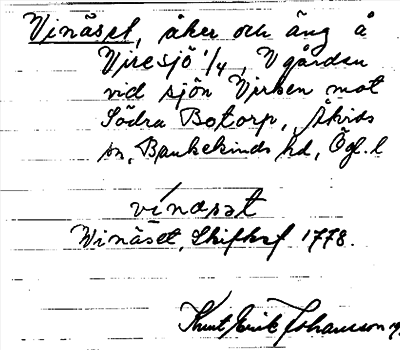 Vinäset, åker och äng å
Viresjö 1/4, V gården
vid sjön Virken mot
Södra Botorp, Åtvids
sn, Bankekinds hd, Ögl. l
Winäset, Skifteaf 1778.
Knut Erik Johansson